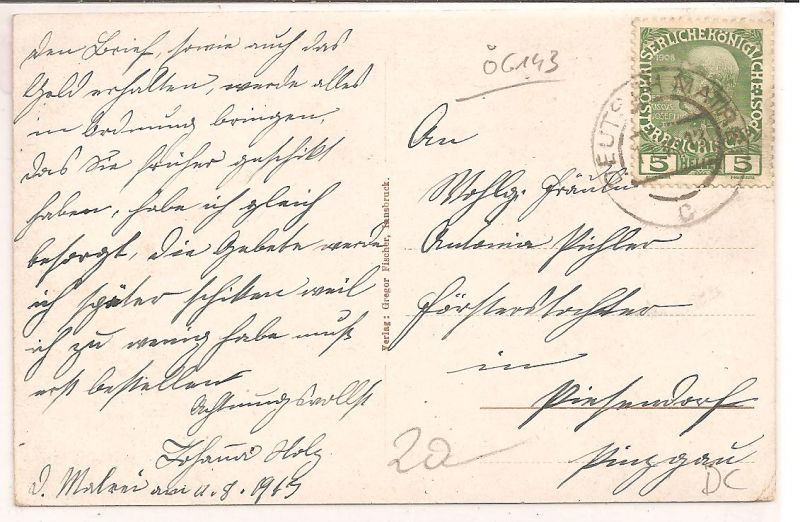 den Brief, sowie auch das
Geld erhalten, werde alles
in Ordnung bringen,
das Sie früher geschikt
haben, habe ich gleich
besorgt, die Gebete werde
ich später schiken weil
ich zu wenig habe muß
erst bestellen
Achtungsvollst
Johanna Holz
D. Matrei am 11. 8. 1913
Verlag: Gregor Fischer, Innsbruck.
ÖG143
1908
KAISERLICHE KÖNIGLICHE
5 HELLER 5
DEUTSCH MATREI
C
An
Wohlg. Fräulein
Antonia Pichler
Försterstochter
in
Piesendorf
Pinzgau
DC